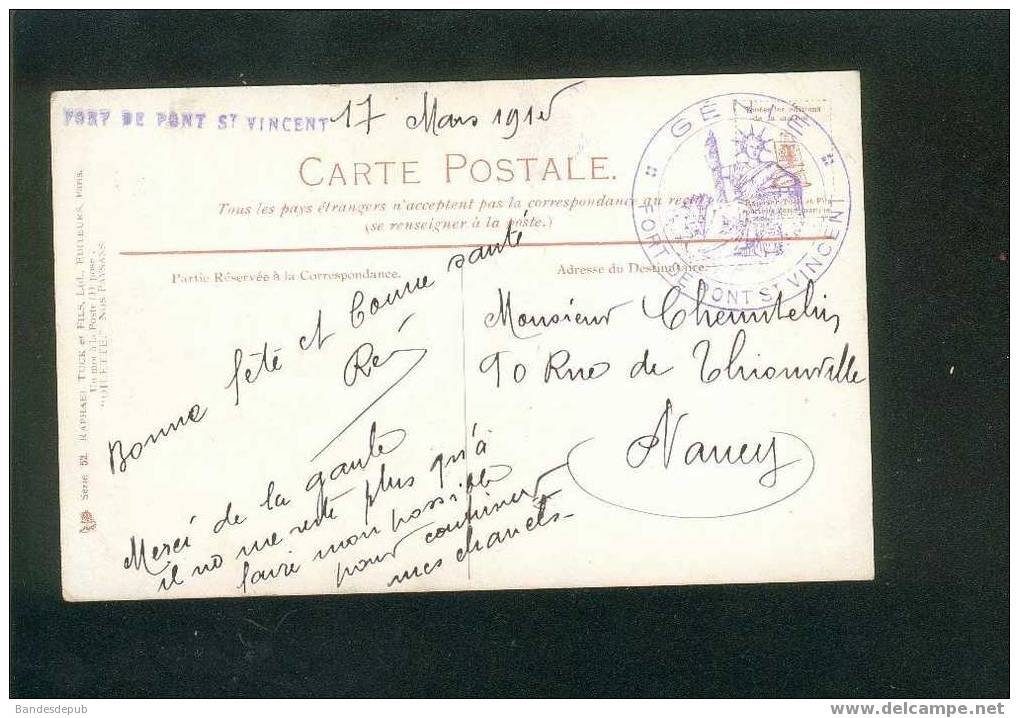 FORT DE PONT ST VINCENT
17 Mars 1915
CARTE POSTALE.
Tous les pays étrangers n'acceptent pas la correspondance au recto
(se renseigner à la poste.)
GÉNIE
FORT DE PONT ST VINCENT
Partie Réservée à la Correspondance.
Adresse du Destinataire.
Bonne fête et bonne santé
René
Merci de la gaule
il ne me reste plus qu'à
faire mon possible
pour continuer
mes
Monsieur
90 Rue de Thionville
Nancy
Série 52. RAPHAEL TUCK et FILS, Ltd., EDITEURS, Paris.
Un mot à la Poste (D) pose.
"OILETTE." NOS PAYSANS
Bandesdepub
www.delcampe.net